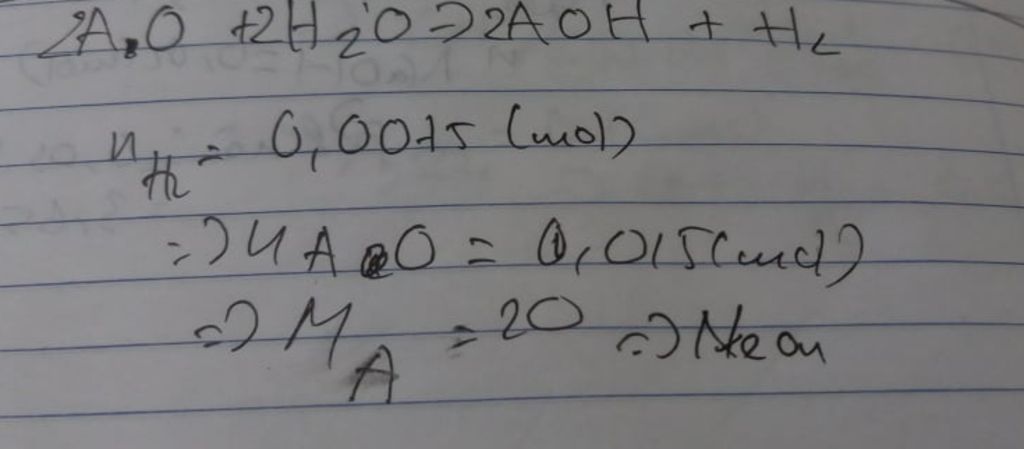 2A.O + 2H2O => 2AOH + H2
nH2 = 0,0075 (mol)
=> nAO = 0,015 (mol)
=> MA = 20 => Neon